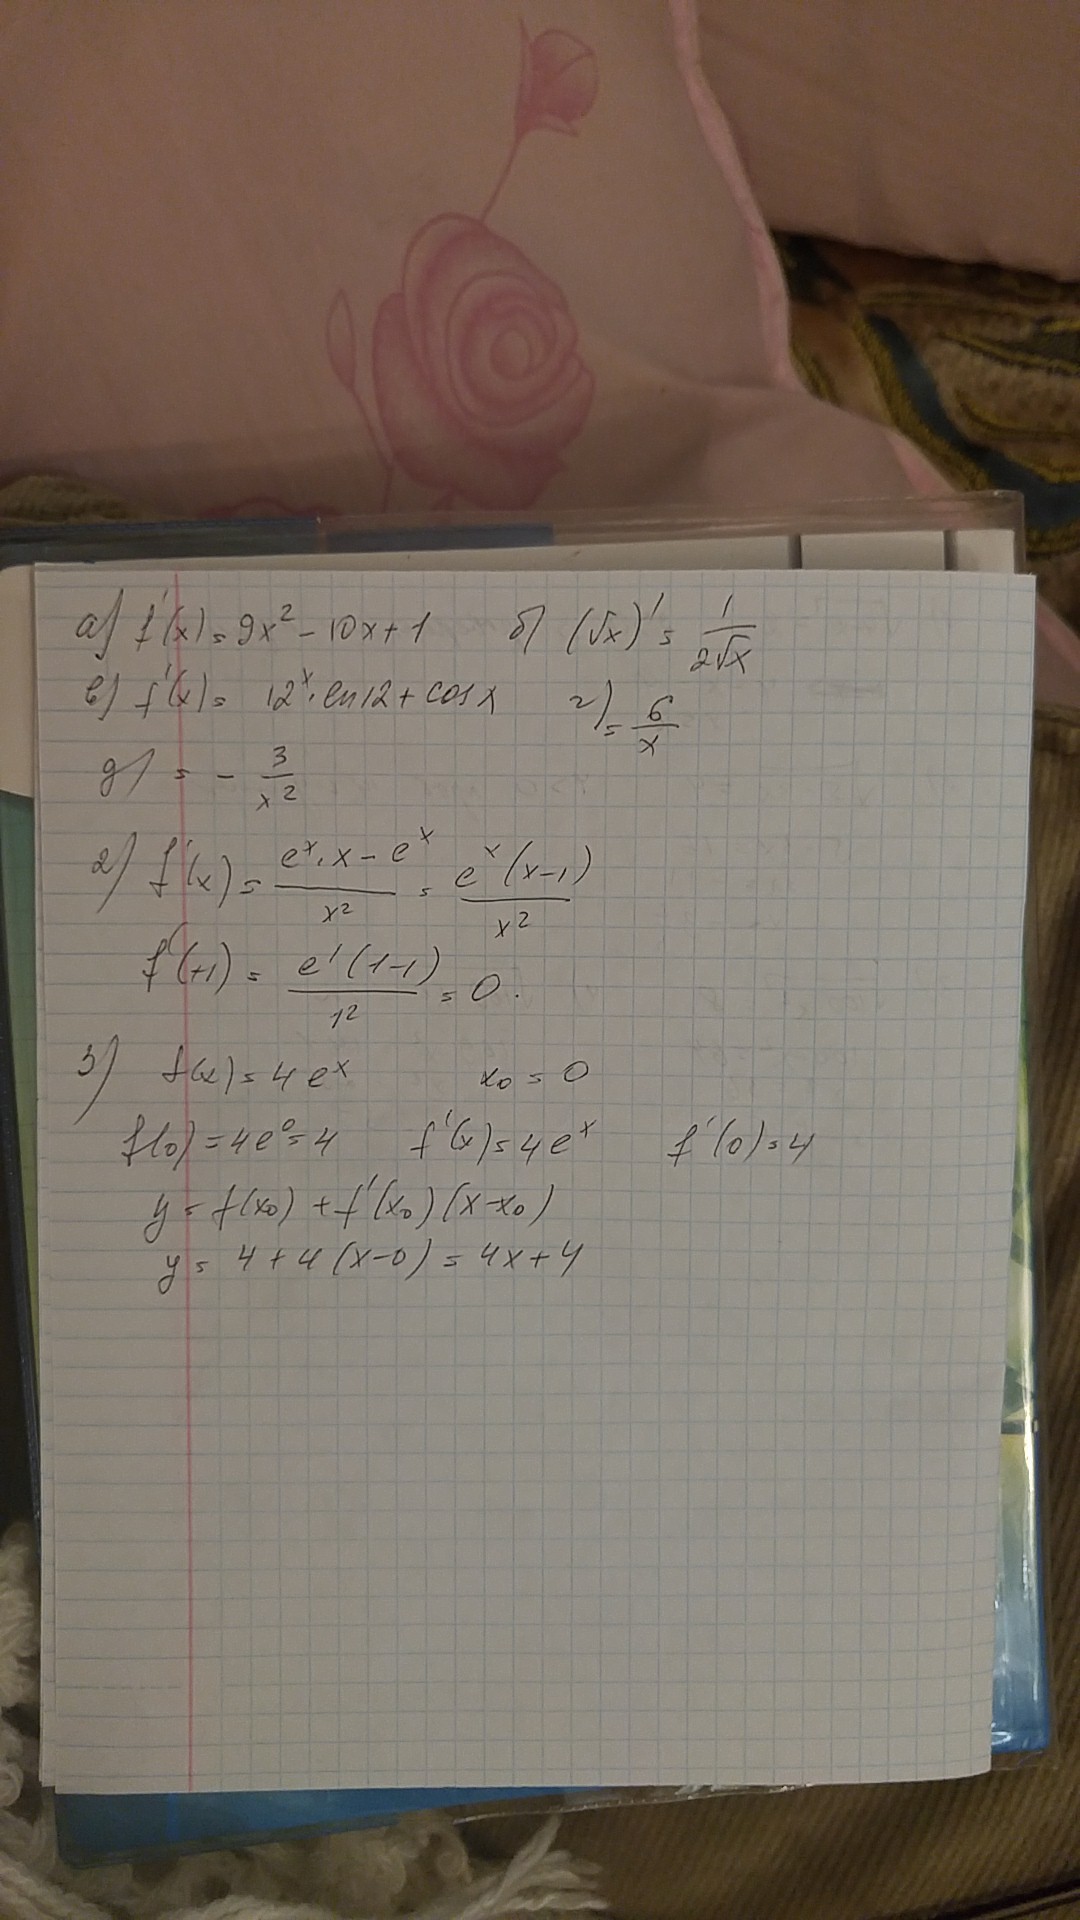 а) f'(x) = 9x² - 10x + 1 б) (√x)' = 1/(2√x)
в) f'(x) = 12ˣ · ln12 + cos x г) = 6/x
д) = - 3/x²
2) f'(x) = (eˣ · x - eˣ)/x² = eˣ(x-1)/x²
f'(+1) = e¹(1-1)/1² = 0.
3) f(x) = 4eˣ x₀ = 0
f(0) = 4e⁰ = 4 f'(x) = 4eˣ f'(0) = 4
y = f(x₀) + f'(x₀)(x-x₀)
y = 4 + 4(x-0) = 4x + 4